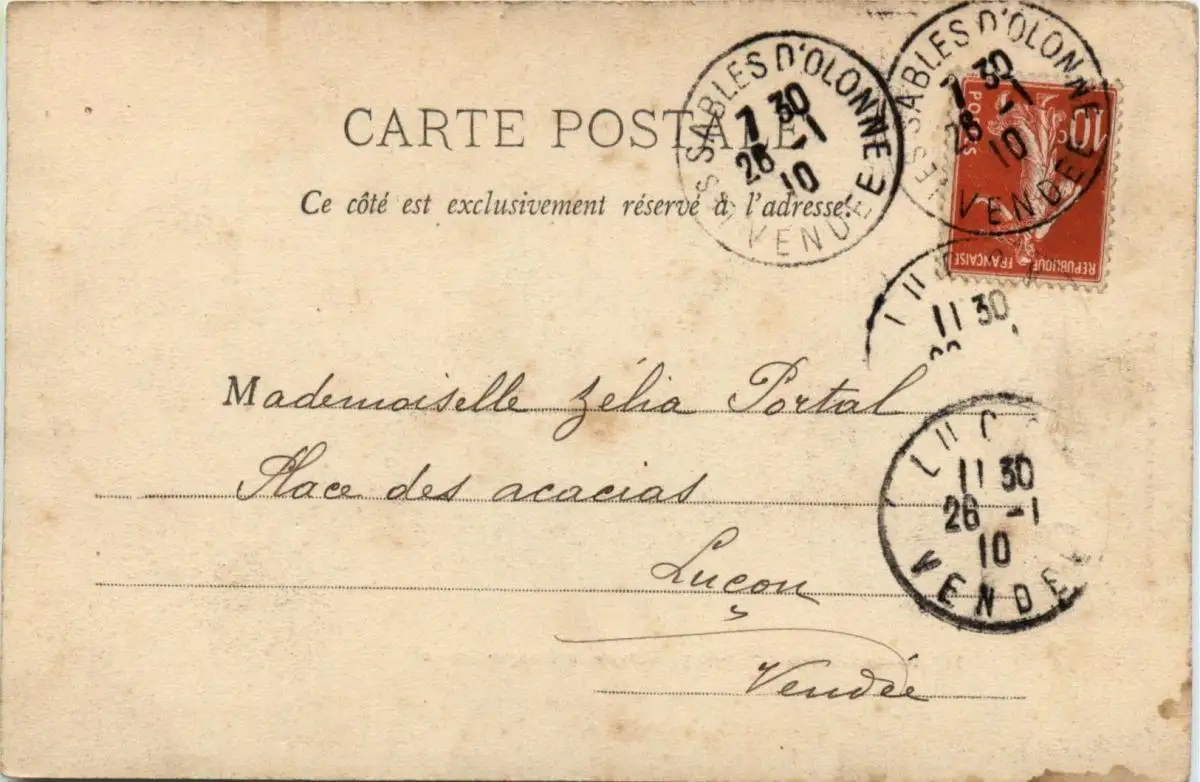 CARTE POSTALE
Ce côté est exclusivement réservé à l'adresse.
LES SABLES D'OLONNE
7 30
26 -1
10
VENDÉE
LES SABLES D'OLONNE
7 30
26 -1
10
VENDÉE
10
POSTES
REPUBLIQUE FRANÇAISE
11 30
Mademoiselle Zélia Portal
Place des acacias
Luçon
Vendée
LUÇ
11 30
26 -1
10
VENDÉE